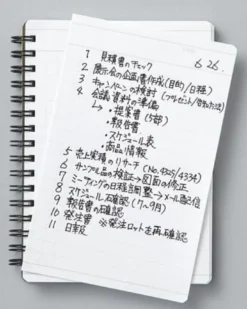 6 26.
1 見積書のチェック
2 展示会の会議書作成(目的/日程)
3 キャンペーンの検討 (プレゼント/告知方法)
4 会議資料の準備
↳・提案書 (5部)
・報告書
・スケジュール表
・商品情報
5 売上実績のリサーチ (No.4325/4334)
6 サンプル品の検証→図面の修正
7 ミーティングの日程調整→メール配信
8 スケジュール確認(7〜9月)
9 報告書の確認
10 発注書 ※発注ロットを再確認
11 日報